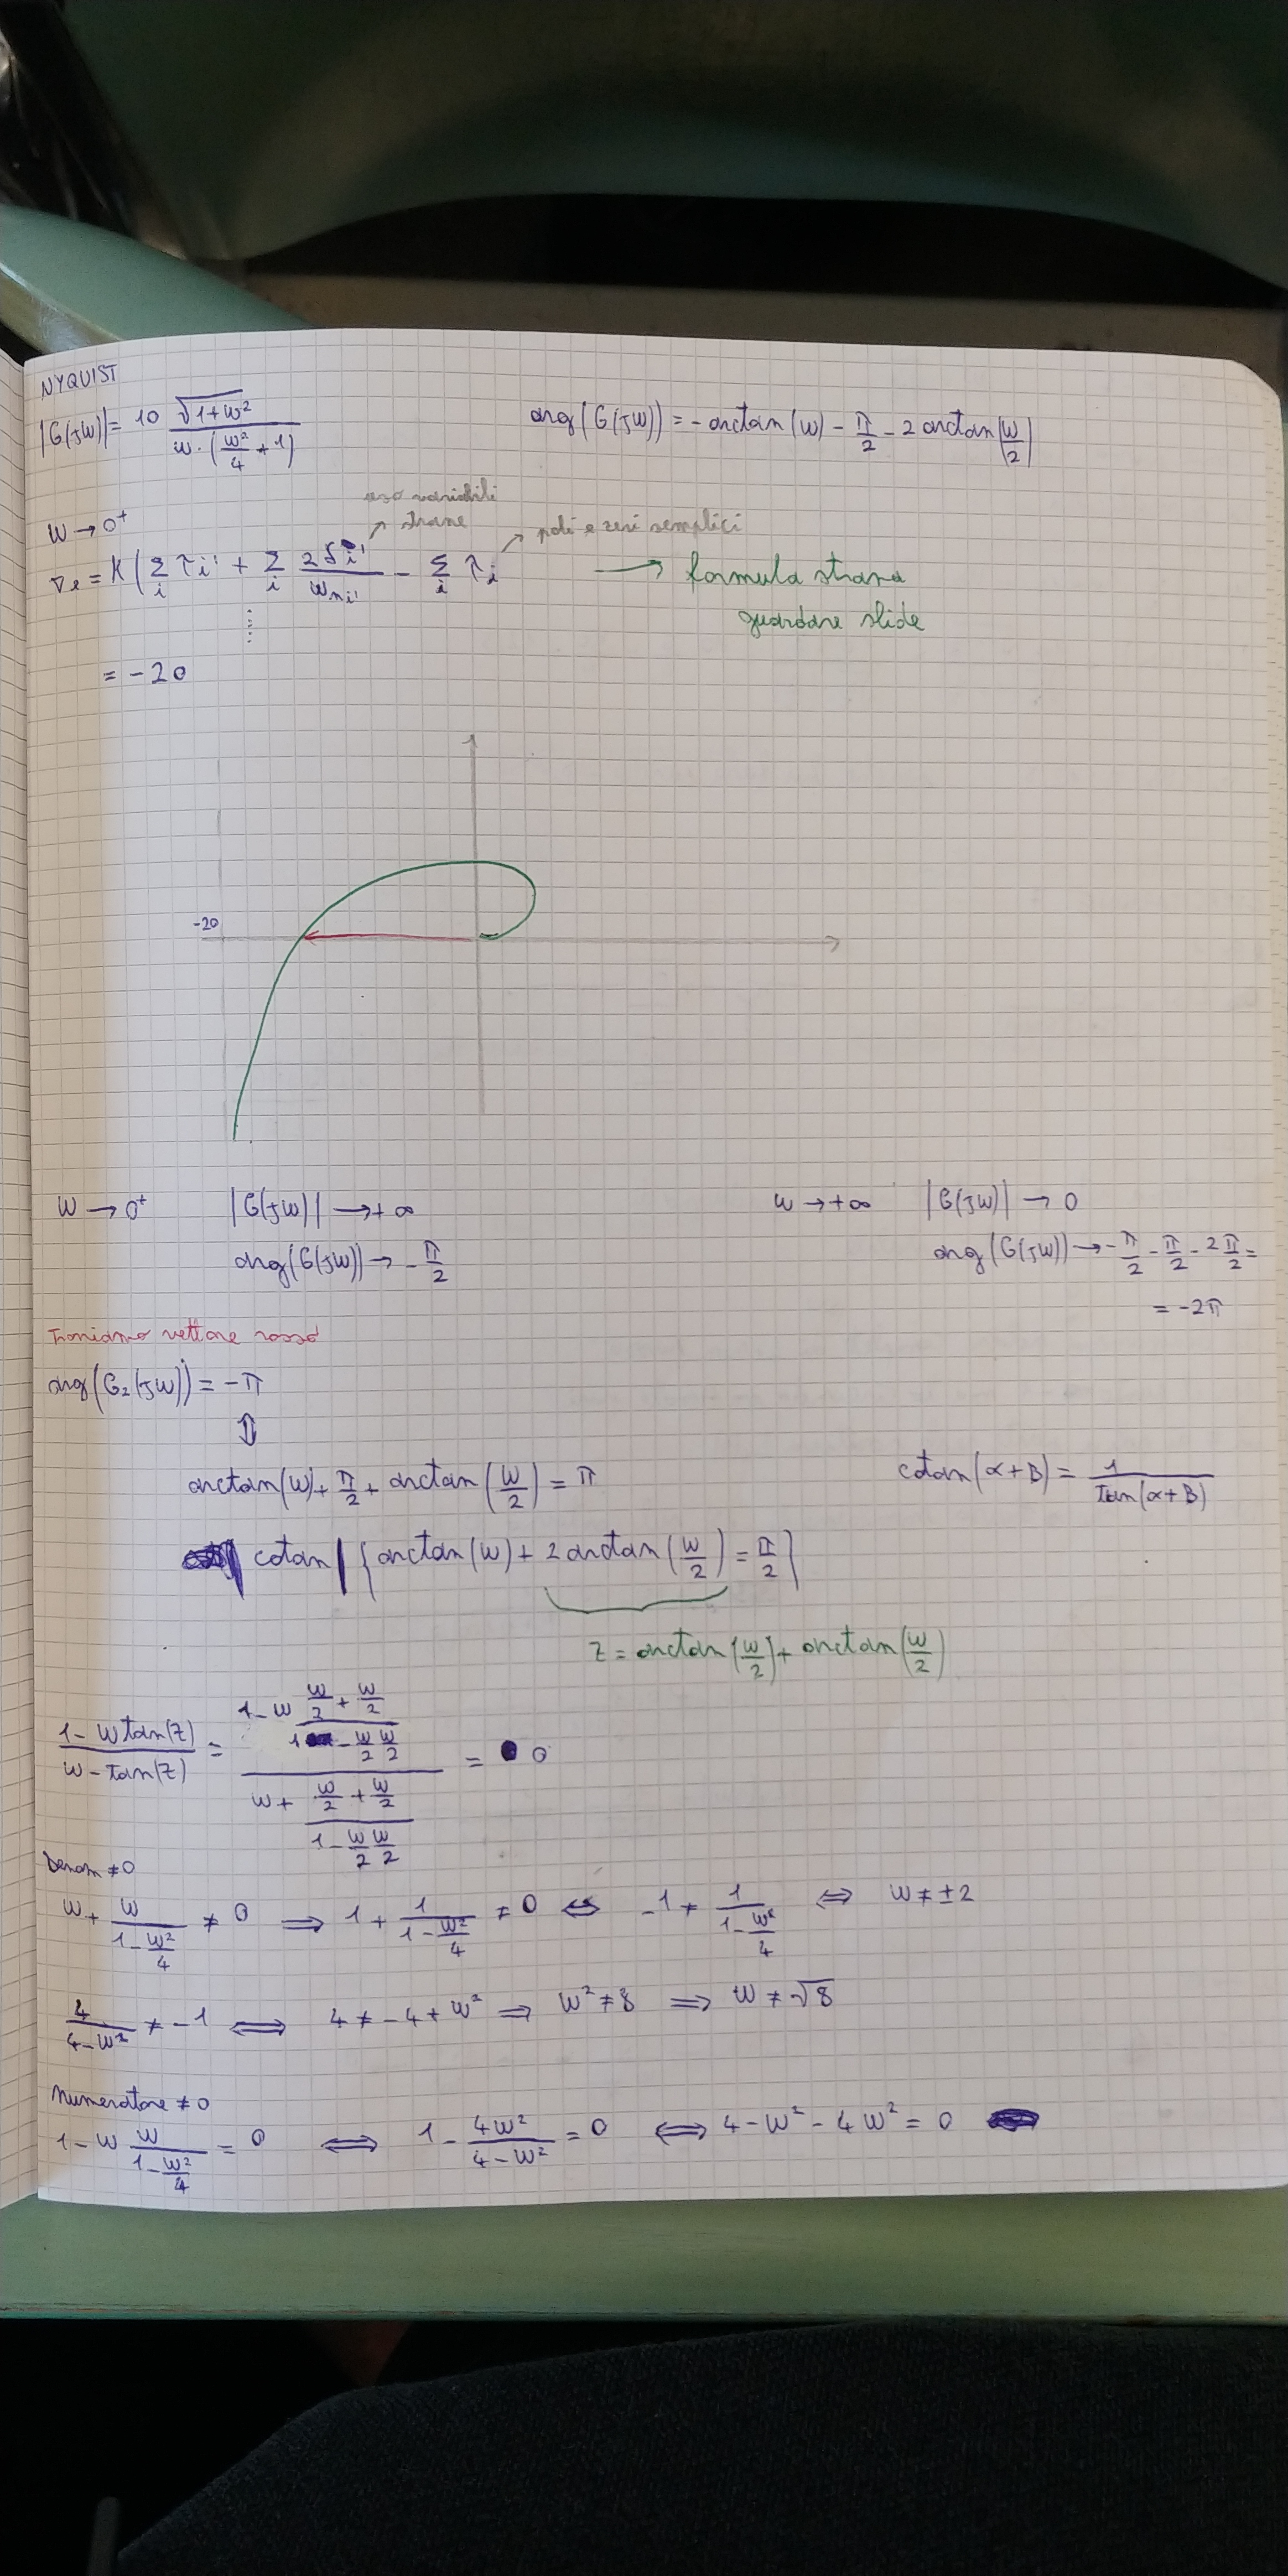 NYQUIST
|G(jω)| = 10 √(1+ω²) / (ω·(ω²/4 + 1))    arg(G(jω)) = -arctan(ω) - π/2 - 2 arctan(ω/2)
uso variabili
strane
poli e zeri semplici
ω → 0⁺
= K(Σi τi' + Σi 2δi'/ωni' - Σi τi → formula strana
guardare slide
= -20
-20
ω → 0⁺    |G(jω)| → +∞    ω → +∞    |G(jω)| → 0
arg(G(jω)) → -π/2    arg(G(jω)) → -π/2 - π/2 - 2π/2 =
= -2π
Troviamo vettore rosso
arg(G₂(jω)) = -π
⇕
arctan(ω) + π/2 + arctan(ω/2) = π    cotan(α+β) = 1/tan(α+β)
cotan { arctan(ω) + 2 arctan(ω/2) = π/2 }
z = arctan(ω/2) + arctan(ω/2)
(1 - ω tan(z)) / (ω - tan(z)) = (1 - ω (ω/2 + ω/2)/(1 - ω/2 ω/2)) / (ω + (ω/2 + ω/2)/(1 - ω/2 ω/2)) = 0
Denom ≠ 0
ω + ω/(1 - ω²/4) ≠ 0 ⟹ 1 + 1/(1 - ω²/4) ≠ 0 ⟺ -1 ≠ 1/(1 - ω²/4) ⟺ ω ≠ ±2
4/(4-ω²) ≠ -1 ⟺ 4 ≠ -4 + ω² ⟹ ω² ≠ 8 ⟹ ω ≠ √8
Numeratore ≠ 0
1 - ω ω/(1 - ω²/4) = 0 ⟺ 1 - 4ω²/(4-ω²) = 0 ⟺ 4 - ω² - 4ω² = 0